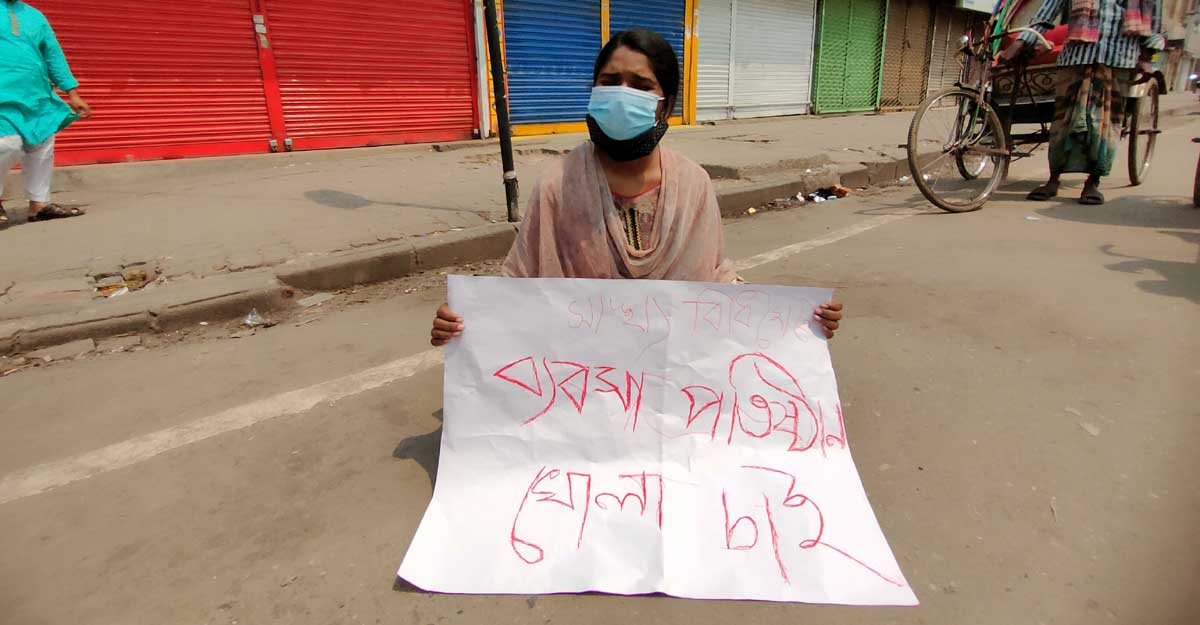 সাস্থ্য বিধি মেনে
ব্যবসা প্রতিষ্ঠান
খোলা চাই